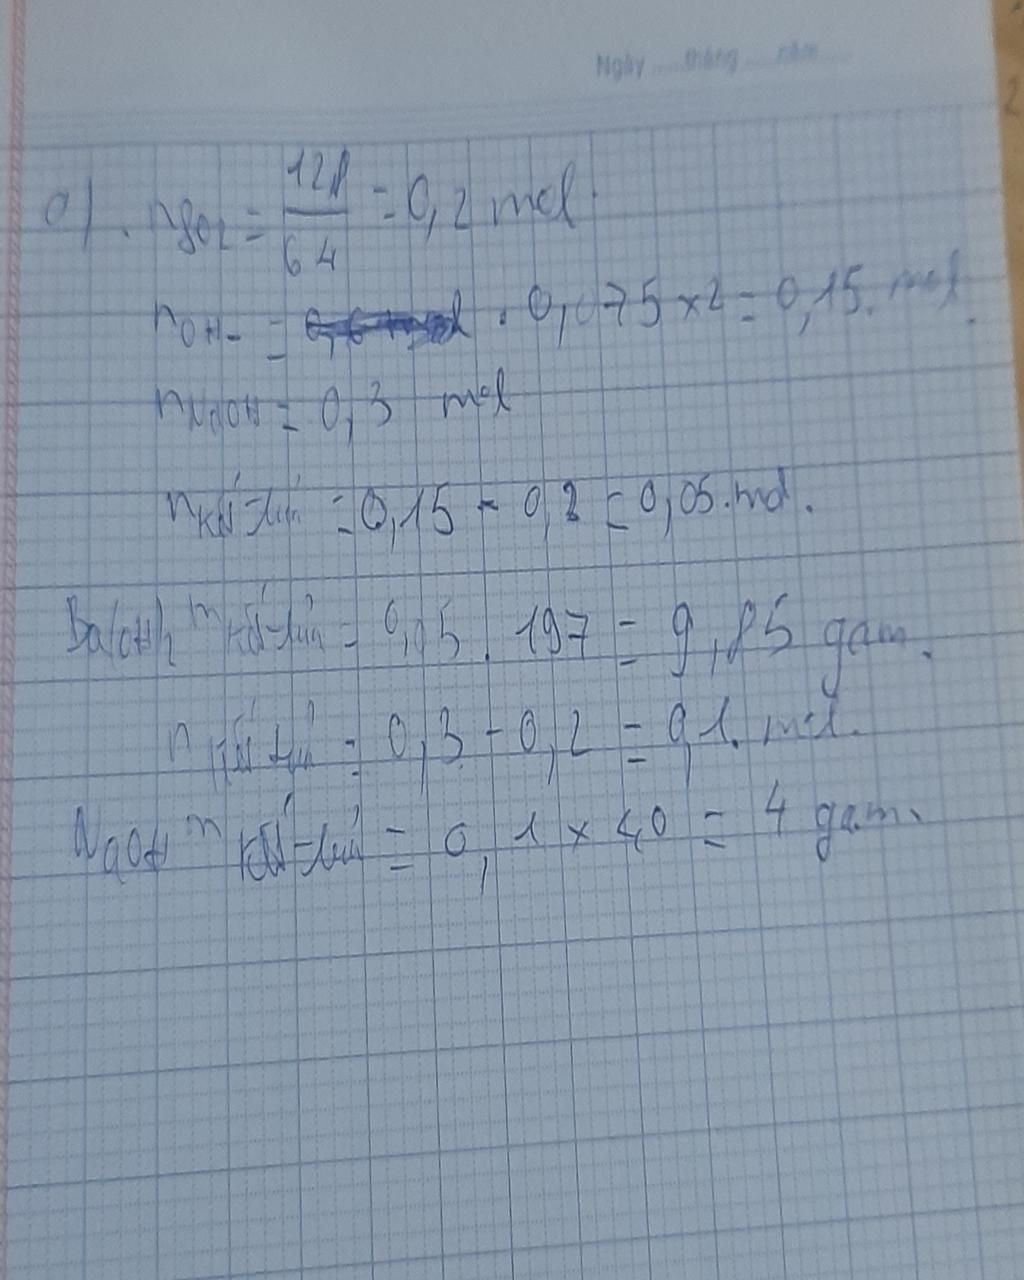 Ngày ..... tháng ..... năm .....
2
a). nSO2 = 12,8 / 64 = 0,2 mol.
nOH- = . 0,075 x 2 = 0,15. mol.
nNaOH = 0,3 mol
nkết tủa = 0,15 - 0,2 = 0,05.mol.
Ba(OH)2 mkết-tủa = 0,05 . 197 = 9,85 gam.
nkết tủa = 0,3 - 0,2 = 0,1. mol.
NaOH mkết-tủa = 0,1 x 40 = 4 gam.